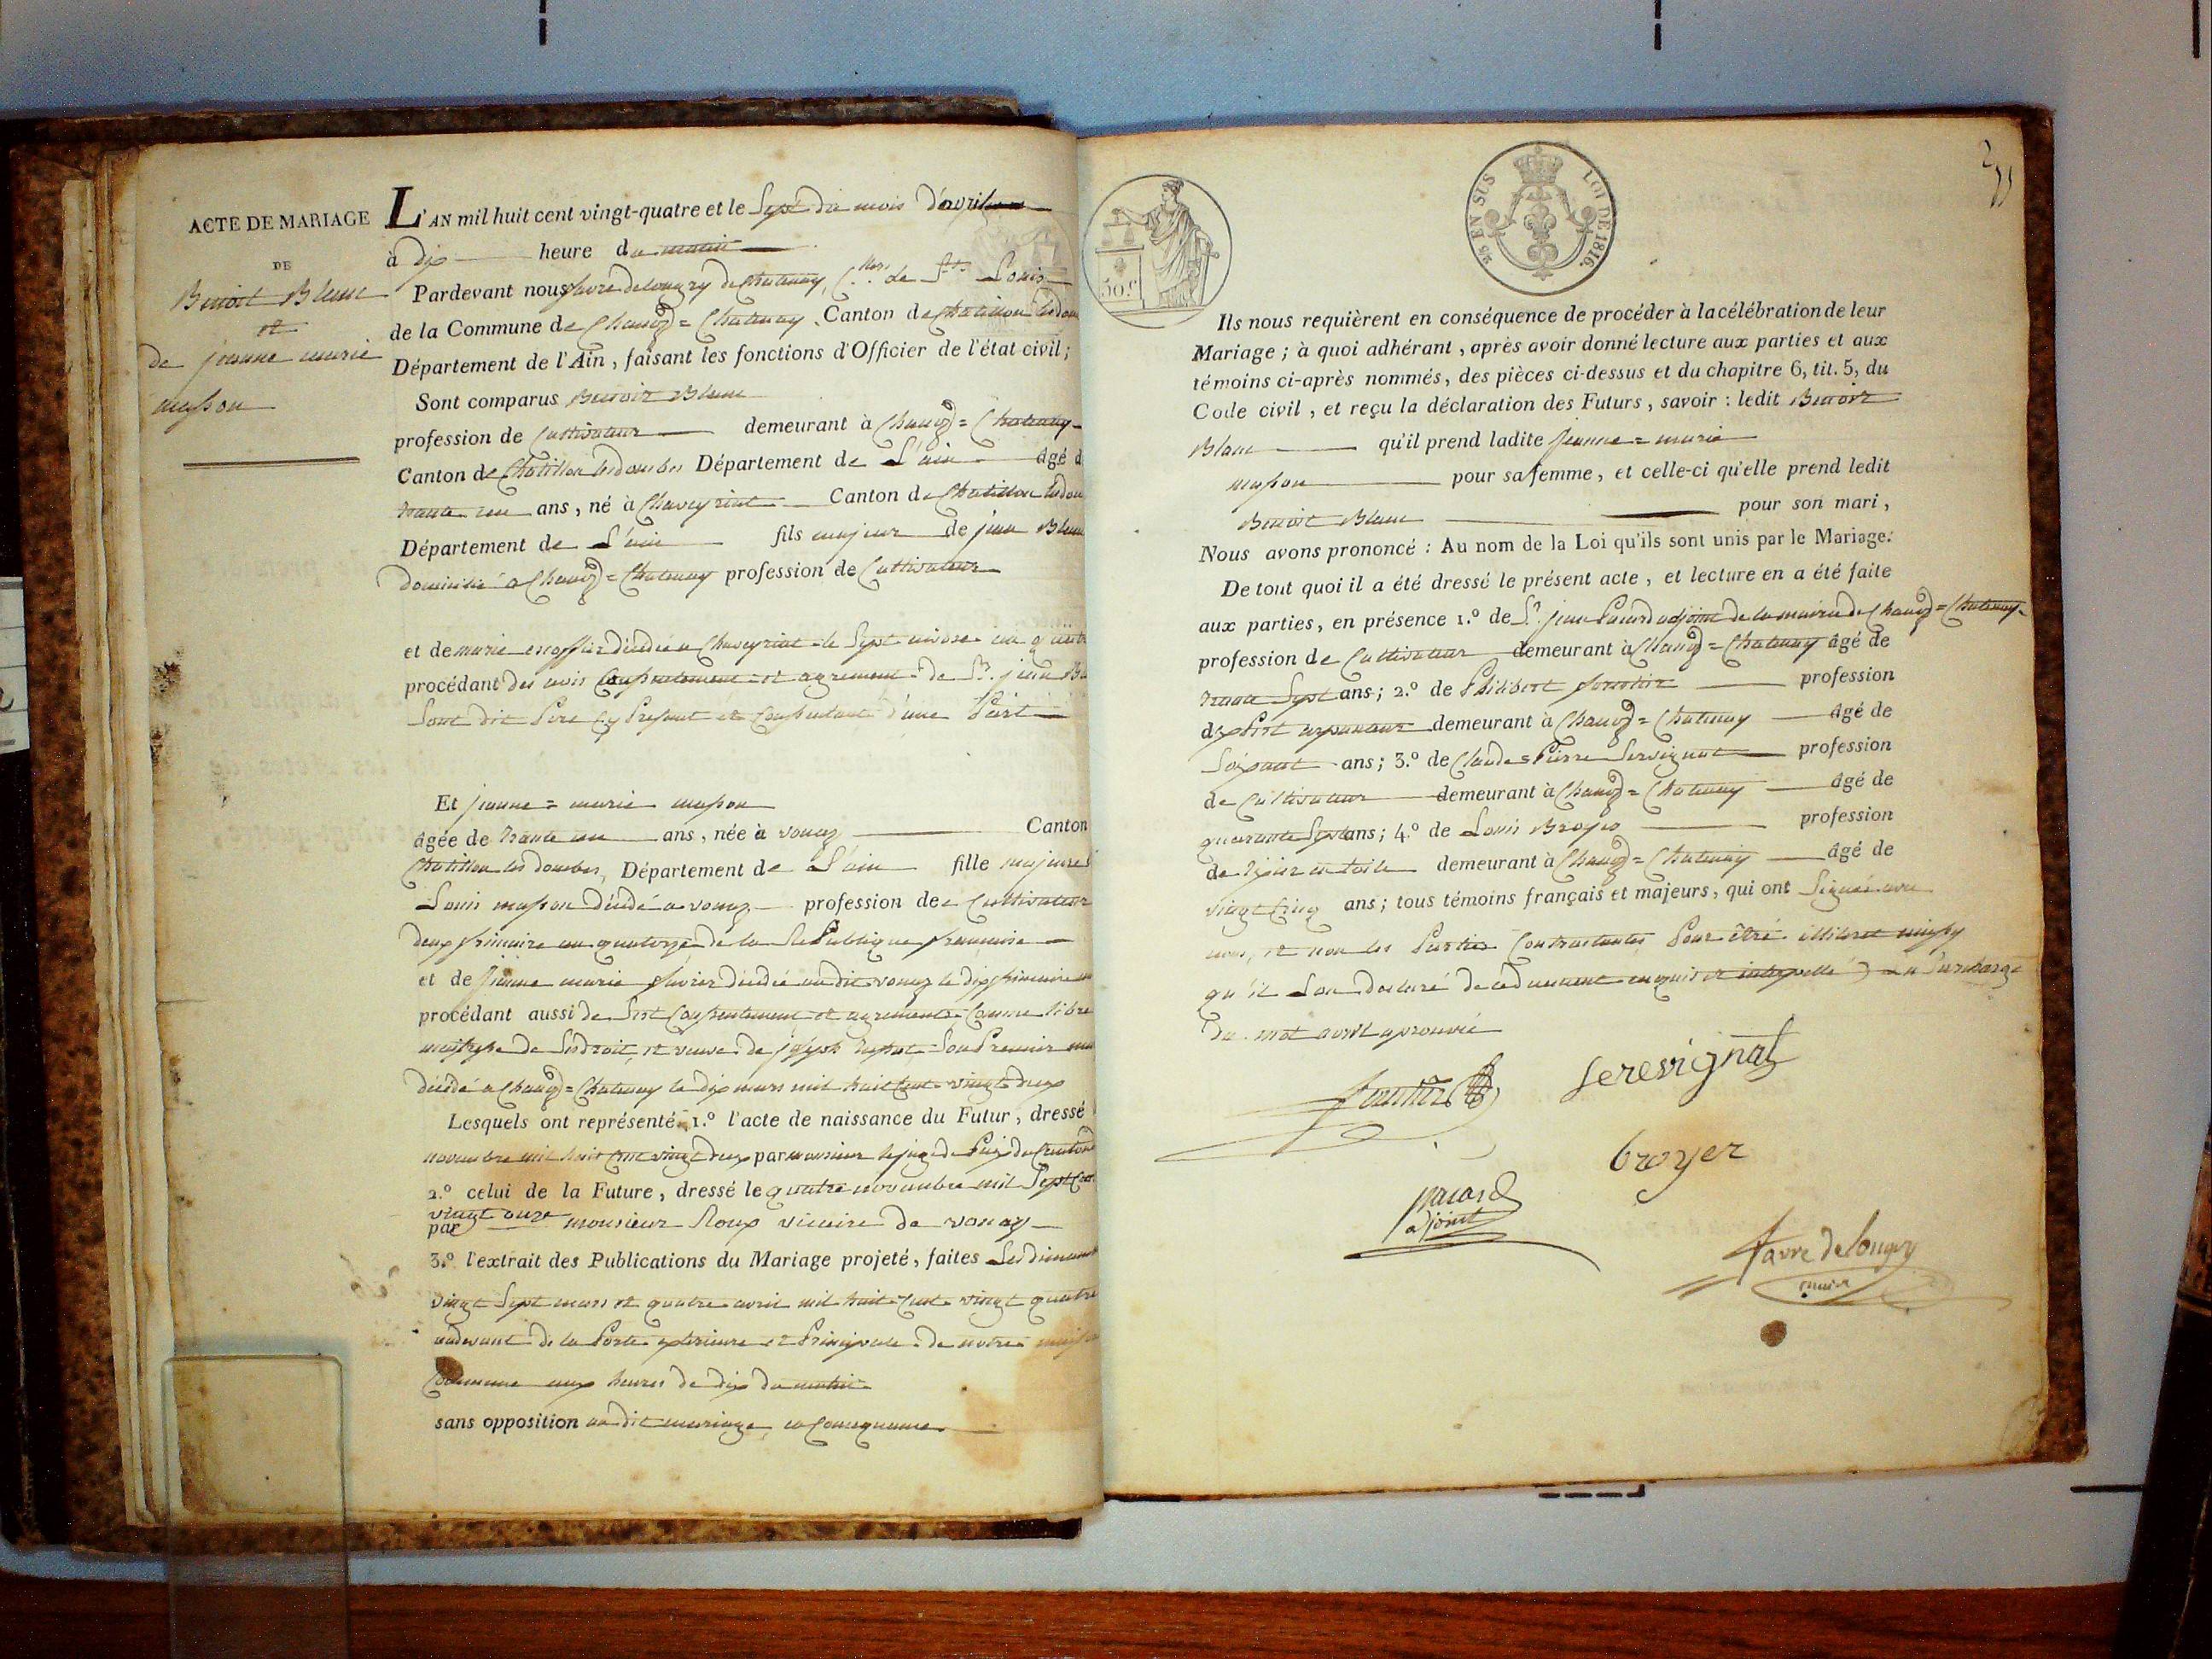 ACTE DE MARIAGE
DE
Benoit Blanc
et
de jeanne marie
masson
L'AN mil huit cent vingt-quatre et le Sept du mois d'avril
à dix heure du matin
Pardevant nous favre delongry de Chatenay, de St. Louis
de la Commune de Chaneg = Chatenay. Canton de Chatillon lesdom
Département de l'Ain, faisant les fonctions d'Officier de l'état civil;
Sont comparus Benoit Blanc
profession de Cultivateur demeurant à Chaneg = Chatenay
Canton de Chatillon lesdombes Département de L'ain âgé d
trante un ans, né à Chaveyriat Canton de Chatillon lesdom
Département de L'ain fils majeur de jean Blanc
domicilié a Chaneg = Chatenay profession de Cultivateur
et de marie décédée a Chaveyriat le Sept nivose an
procédant des avis Consentement et agrement de Sr. jean Bl
Son dit Pere Cy Present et Consentant d'une Part
Et jeanne = marie masson
âgée de trante un ans, née à vonaz Canton
Chatillon les dombes, Département de L'ain fille majeure
Louis masson décédé a vonaz profession de Cultivateur
deux frimaire an quatorze de la Republique francaise
et de jeanne marie décédée au dit vonaz le dix frimaire an
procédant aussi de Consentement et agrement Comme libre
maitresse de Ses droit, et veuve de joseph Son Premier ma
décédé a Chaneg = Chatenay le dix mars mil huit Cent vingt deux
Lesquels ont représenté, 1.º l'acte de naissance du Futur, dressé
novembre mil huit Cent vingt deux par monsieur le juge de Paix du Canton
2.º celui de la Future, dressé le quatre novembre mil Sept Cent
vingt onze
par monsieur Roux vicaire de vonaz
3.º l'extrait des Publications du Mariage projeté, faites Les dimanche
vingt Sept mars et quatre avril mil huit Cent vingt quatre
audevant de la Porte exterieure et Principale de notre maison
Commune aux heures de dix du matin
sans opposition au dit mariage, en Consequence
25 EN SUS LOI DE 1816.
50.c
Ils nous requièrent en conséquence de procéder à la célébration de leur
Mariage; à quoi adhérant, après avoir donné lecture aux parties et aux
témoins ci-après nommés, des pièces ci-dessus et du chapitre 6, tit. 5, du
Code civil, et reçu la déclaration des Futurs, savoir: ledit Benoit
Blanc qu'il prend ladite Jeanne = marie
masson pour sa femme, et celle-ci qu'elle prend ledit
Benoit Blanc pour son mari,
Nous avons prononcé: Au nom de la Loi qu'ils sont unis par le Mariage.
De tout quoi il a été dressé le présent acte, et lecture en a été faite
aux parties, en présence 1.º de Sr. jean Pacard adjoint de la mairie de Chaneg = Chatenay
profession de Cultivateur demeurant à Chaneg = Chatenay âgé de
trante Sept ans; 2.º de Philibert profession
d'expert arpenteur demeurant à Chaneg = Chatenay âgé de
Soixante ans; 3.º de Claude = Pierre Servignat profession
de Cultivateur demeurant à Chaneg = Chatenay âgé de
quarante Sept ans; 4.º de Louis Broyer profession
de tixier en toile demeurant à Chaneg = Chatenay âgé de
vingt Cinq ans; tous témoins français et majeurs, qui ont Signé avec
nous, et non les Parties Contractantes Pour être illiteré
qu'il Son declaré de ce duement enquis et interpellé La Surcharge
du mot avril aprouvée
serevignat
broyer
pacard
adjoint
favre delongry
maire